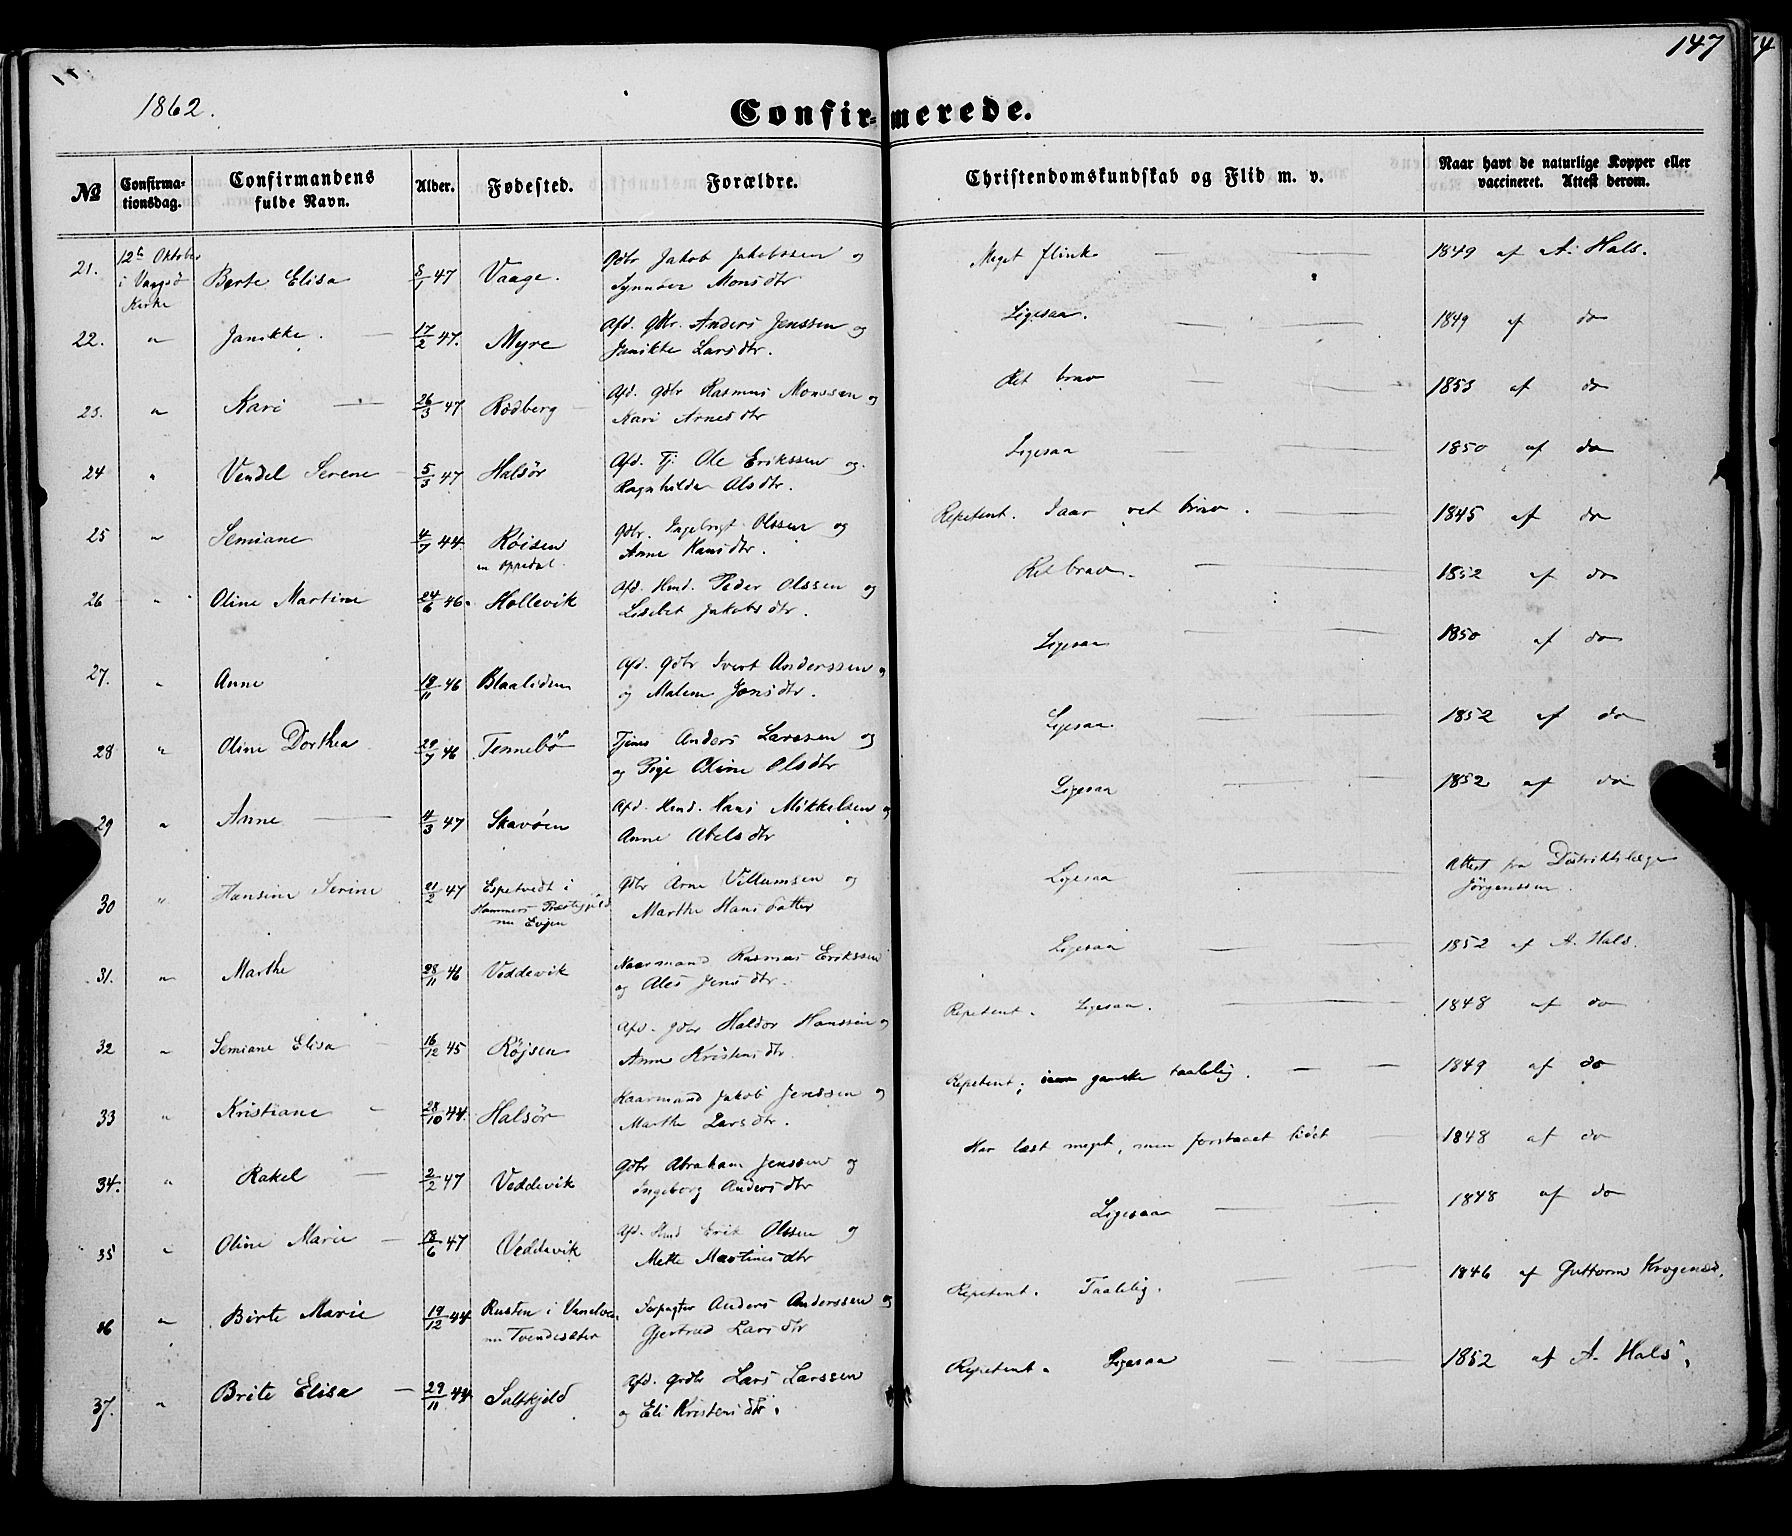 147
1862.
Confirmerede.
№ Confirmationsdag. Confirmandens fulde Navn. Alder. Fødested. Forældre. Christendomskundskab og Flid m. v. Naar havt de naturlige Kopper eller vaccineret. Attest derom.
21. 12te Oktober i Vaagsø Kirke Berte Elisa 5/1 47 Vaage. Gdbr Jakob Jakobssen og Synnøve Monsdtr Meget flink 1849 af A. Hals.
22. " Janikke. 17/2 47. Myre Afd. Gbr. Anders Jenssen og Janikke Larsdtr. Ligesaa. 1849 af do
23. " Kari 26/3 47 Rødberg Afd. Gdbr Rasmus Monssen og Kari Arnesdtr Ret brav 1853 af do
24 " Vendel Serene 5/3 47 Halsør Afd. Tj. Ole Erikssen og Ragnhilde Olsdtr. Ligesaa 1850 af do
25 " Semiane 4/7 44 Røisen nu Oppedal. Gdbr. Ingebrigt Olssen og Anne Hansdtr. Repetent. Iaar ret brav. 1845 af do
26 " Oline Martine 24/6 46. Hollevik Afd. Hmd. Peder Olssen og Lisebet Jakobsdtr. Ret brav. 1852 af do
27. " Anne 18/11 46 Blaaliden Afd. Gdbr Ivert Anderssen og og Malene Jonsdtr. Ligesaa 1850 af do
28 " Oline Dorthea 29/7 46 Tennebø Tjener Anders Larssen og og Pige Oline Olsdtr Ligesaa. 1852 af do
29 " Anne 4/3 47 Skavøen Afd. Hmd. Hans Mikkelsen og Anne Abelsdtr Ligesaa 1852 af do
30 " Hansine Serine 21/2 47 Espetvedt i Hammers Præstegjeld nu Evjen Gdbr Arne Villumsen og Marthe Hansdatter Ligesaa Attest fra Distriktslæge Jörgenssen.
31. " Marthe 28/11 46 Veddevik Kaarmand Rasmus Erikssen og Ales Jensdtr. Ligesaa 1852 af A. Hals.
32 " Semiane Elisa 16/12 45 Røjsen Afd. Gdbr Haldor Hanssen og Anne Kristensdtr. Repetent. Ligesaa. 1848 af do
33 " Kristiane 28/10 44. Halsør Kaarmand Jakob Jenssen og Marthe Larsdtr. Repetent; iaar ganske taalelig. 1849 af do
34. " Rakel 2/2 47 Veddevik Gdbr Abraham Jenssen og Ingeborg Andersdtr Har læst meget, men forstaaet lidet 1848 af do
35 " Oline Marie 18/6 47 Veddevik Afd. Hmd Erik Olssen og Mette Martinusdtr Ligesaa 1848 af do
36 " Birte Marie 19/12 44 Rusten i Vanelven nu Tvendesæter Forpagter Anders Anderssen og Gjertrud Larsdtr Repetent. Taalelig. 1846 af Guttorm Krogenæs.
37. " Brite Elisa 29/11 44 Saltkjeld Afd. Grdbr Lars Larssen og Eli Kristensdtr. Repetent. Ligesaa 1852 af A. Hals.